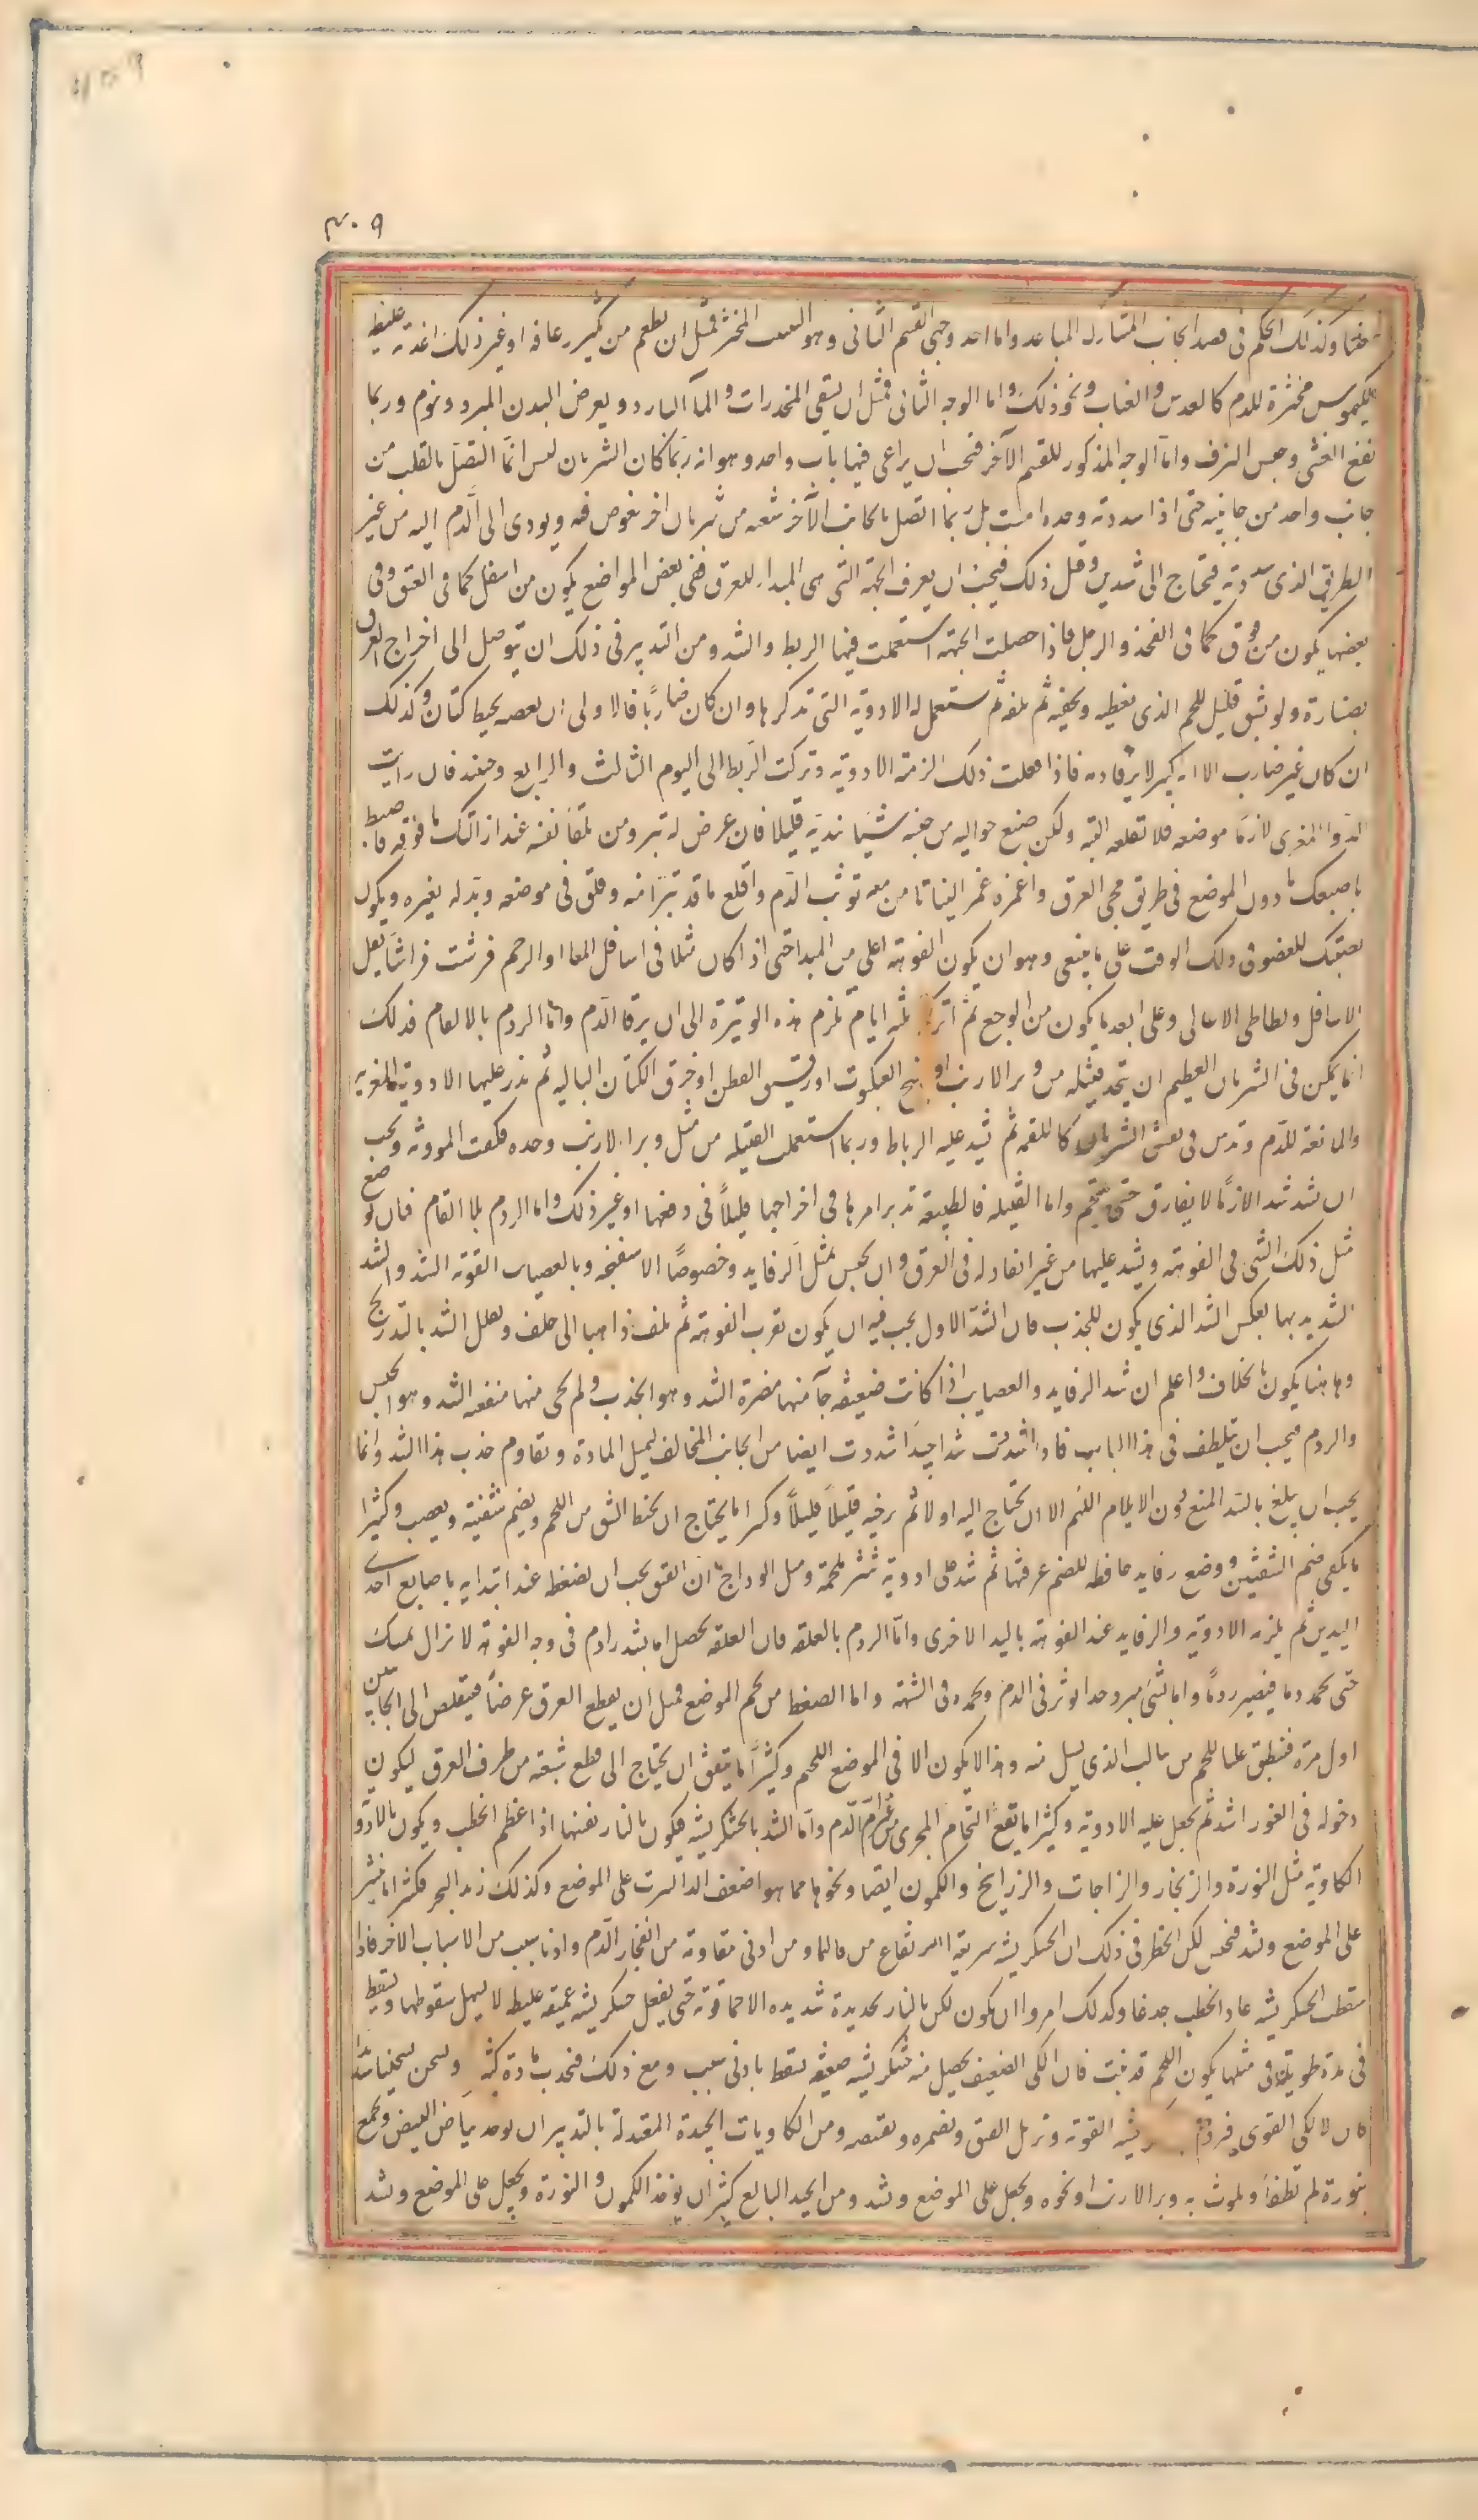 ٣٠٩
وكذلك الحكم فى فصد الجانب المشارك المباعد واما احد وجهى القسم الثانى وهو المخثر فمثل ان يطعم من كثير رعافه او غير ذلك اغذية غليظه
الكيموس مخثرة للدم كالعدس والعناب ونحو ذلك واما الوجه الثانى فمثل ان يسقى المخدرات والمآ البارد ويعرض البدن للبرد وينوم وربما
نفع الغشى وحبس النزف واما الوجه المذكور للقسم الآخر فيجب ان يراعى فيها باب واحد وهو انه ربما كان الشريان ليس انما اتصل بالقلب من
جانب واحد من جانبيه حتى اذا سددته وحده امنت بل ربما اتصل بالجانب الآخر شعبه من شريان اخر يغوص فيه ويودى الى الدم اليه من غير
الطريق الذى سددته فيحتاج الى شدين وقبل ذلك فيجب ان يعرف الجهة التى هى المبدا للعرق ففى بعض المواضع يكون من اسفل كما فى العنق وفى
بعضها يكون من فوق كما فى الفخذ والرجل فاذا حصلت الجهة استعملت فيها الربط والشد ومن التدبير فى ذلك ان يتوصل الى اخراج العرق
بصنارة ولو بشق قليل للحم الذى يغطيه ويخفيه ثم يلفه ثم يستعمل له الادوية التى تذكرها وان كان ضاربًا فالاولى ان يعصبه بخيط كتان وكذلك
ان كان غير ضارب الا انه كبير لا يرقا دمه فاذا فعلت ذلك الزمته الادوية وتركت الربط الى اليوم الثالث والرابع وحينئذ فان رايت
الدوا المغرى لازمًا موضعه فلا تقلعه البته ولكن ضع حواليه من جنسه شيئا نديه قليلا فان عرض له تبرو من تلقا نفسه عند ازالتك ما فوقه فاضبط
باصبعك ما دون الموضع فى طريق مجى العرق واغمزه غمزا لينا تامن معه توثب الدم واقلع ما قد تبرا منه وقلق فى موضعه وبدله بغيره ويكون
نصبتك للعضو فى ذلك الوقت على ما ينبغى وهو ان يكون الفوهة اعلى من المبدا حتى اذا كان مثلا فى اسافل المعا او الرحم فرشت فراشا يقل
الاسافل ويطاطى الاعالى وعلى ابعد ما يكون من الوجع ثم اتركه ثلثه ايام يلزم هذه الوتيرة الى ان يرقا الدم واما الردم بالالقام فذلك
انما يمكن فى الشريان العظيم ان يتخذ فتيله من وبر الارنب او نسج العنكبوت او رقيق القطن او خرق الكتان الباليه ثم يذر عليها الادوية المغريه
والمانعة للدم وتدس فى نفس الشريان كاللقمه ثم يشد عليه الرباط وربما استعملت الفتيله من مثل وبر الارنب وحده فكفت الموونه ويجب
ان يشد شدا لازمًا لا يفارق حتى يلتحم واما الفتيله فالطبيعة تدبر امرها فى اخراجها قليلاً فى دفعها او غير ذلك واما الردم بلا القام فان توضع
مثل ذلك الشى فى الفوهة ويشد عليها من غير انفاد له فى العرق وان يحبس بمثل الرفايد وخصوصًا الاسفنجيه وبالعصايب القويه الشد والشد
الشديد بها بعكس الشد الذى يكون للجذب فان الشد الاول يجب فيه ان يكون بقرب الفوهه ثم يلف ذاهبا الى خلف ويقلل الشد بالتدريج
وهاهنا يكون بالخلاف واعلم ان شد الرفايد والعصايب اذا كانت ضعيفه جآ منها مضرة الشد وهو الجذب ولم يجى منها منفعه الشد وهو الحبس
والردم فيجب ان يتلطف فى هذا الباب فاذا شددت شدا جيدا شددت ايضا من الجانب المخالف ليميل المادة ويقاوم جذب هذا الشد وانما
يجب ان يبلغ بالشد المنع دون الايلام اللهم الا ان يحتاج اليه اولا ثم يرخيه قليلاً قليلاً وكثيرا ما يحتاج ان يخيط الشق من اللحم ويضم شفتيه ويعصب وكثيرا
ما يكفى ضم الشفتين ووضع رفايد حافظه للضم عرفتها ثم شد على ادوية تنثر ملحمة ومثل الوداج ان انفتق يجب ان يضغط عند ابتدايه باصابع احدى
اليدين ثم يلزمه الادوية والرفايد عند الفوهة باليد الاخرى واما الردم بالعلقه فان العلقه يحصل اما بشد رادم فى وجه الفوهة لا تزال تمسك
حتى يجمد دما فيصير ردمًا واما بشى مبرد جدا يوثر فى الدم ويجمده فى الشفة واما الضغط من لحم الموضع فمثل ان يقطع العرق عرضًا فيتقلص الى الجانبين
اول مرة فينطبق عليه اللحم من جالب الذى يسيل منه وهذا لا يكون الا فى الموضع اللحم وكثيرًا ما يتفق ان يحتاج الى قطع شعبة من طرف العرق ليكون
دخوله فى الغور اشد ثم يجعل عليه الادوية وكثيرا ما يقع التحام المجرى من الدم واما الشد بالخشكريشه فيكون بالنار نفسها اذا عظم الخطب ويكون بالادوية
الكاوية مثل النورة والزنجار والزاجات والزرانيخ والكمون ايضا ونحوها مما هو اضعف اذا انثرت على الموضع وكذلك زبد البحر فكثيرا ما ينثر
على الموضع ويشد فيحبس لكن الخطر فى ذلك ان الخشكريشه سريعة الانقلاع من ومن ادنى مقاومة من انفجار الدم وادنى سبب من الاسباب الاخر فاذا
سقطت الخشكريشه عاد الخطب جدعا وكذلك امروا ان يكون لكى بالنار بحديدة شديده الاحما قويه حتى يفعل خشكريشه عميقه غليظه لا يسهل سقوطها ويسقط
فى مدة طويلة فى مثلها يكون اللحم قد نبت فان الكى الضعيف يحصل منه خشكريشه ضعيفه يسقط بادنى سبب ومع ذلك فيجذب مادة كثيره ويسخن تسخينا شديدا
فان الكى القوى فيردم القوية وتزيل الفتق ويضمره ويقبضه ومن الكاويات الجيدة المعتدلة بالتدبير ان يوخذ بياض البيض ويجمع
بنورة لم تطفا ويلوث به وبر الارنب او نحوه ويجعل على الموضع ويشد ومن الجيد البالغ كثيرا ان يوخذ الكمون والنورة ويجعل على الموضع ويشد